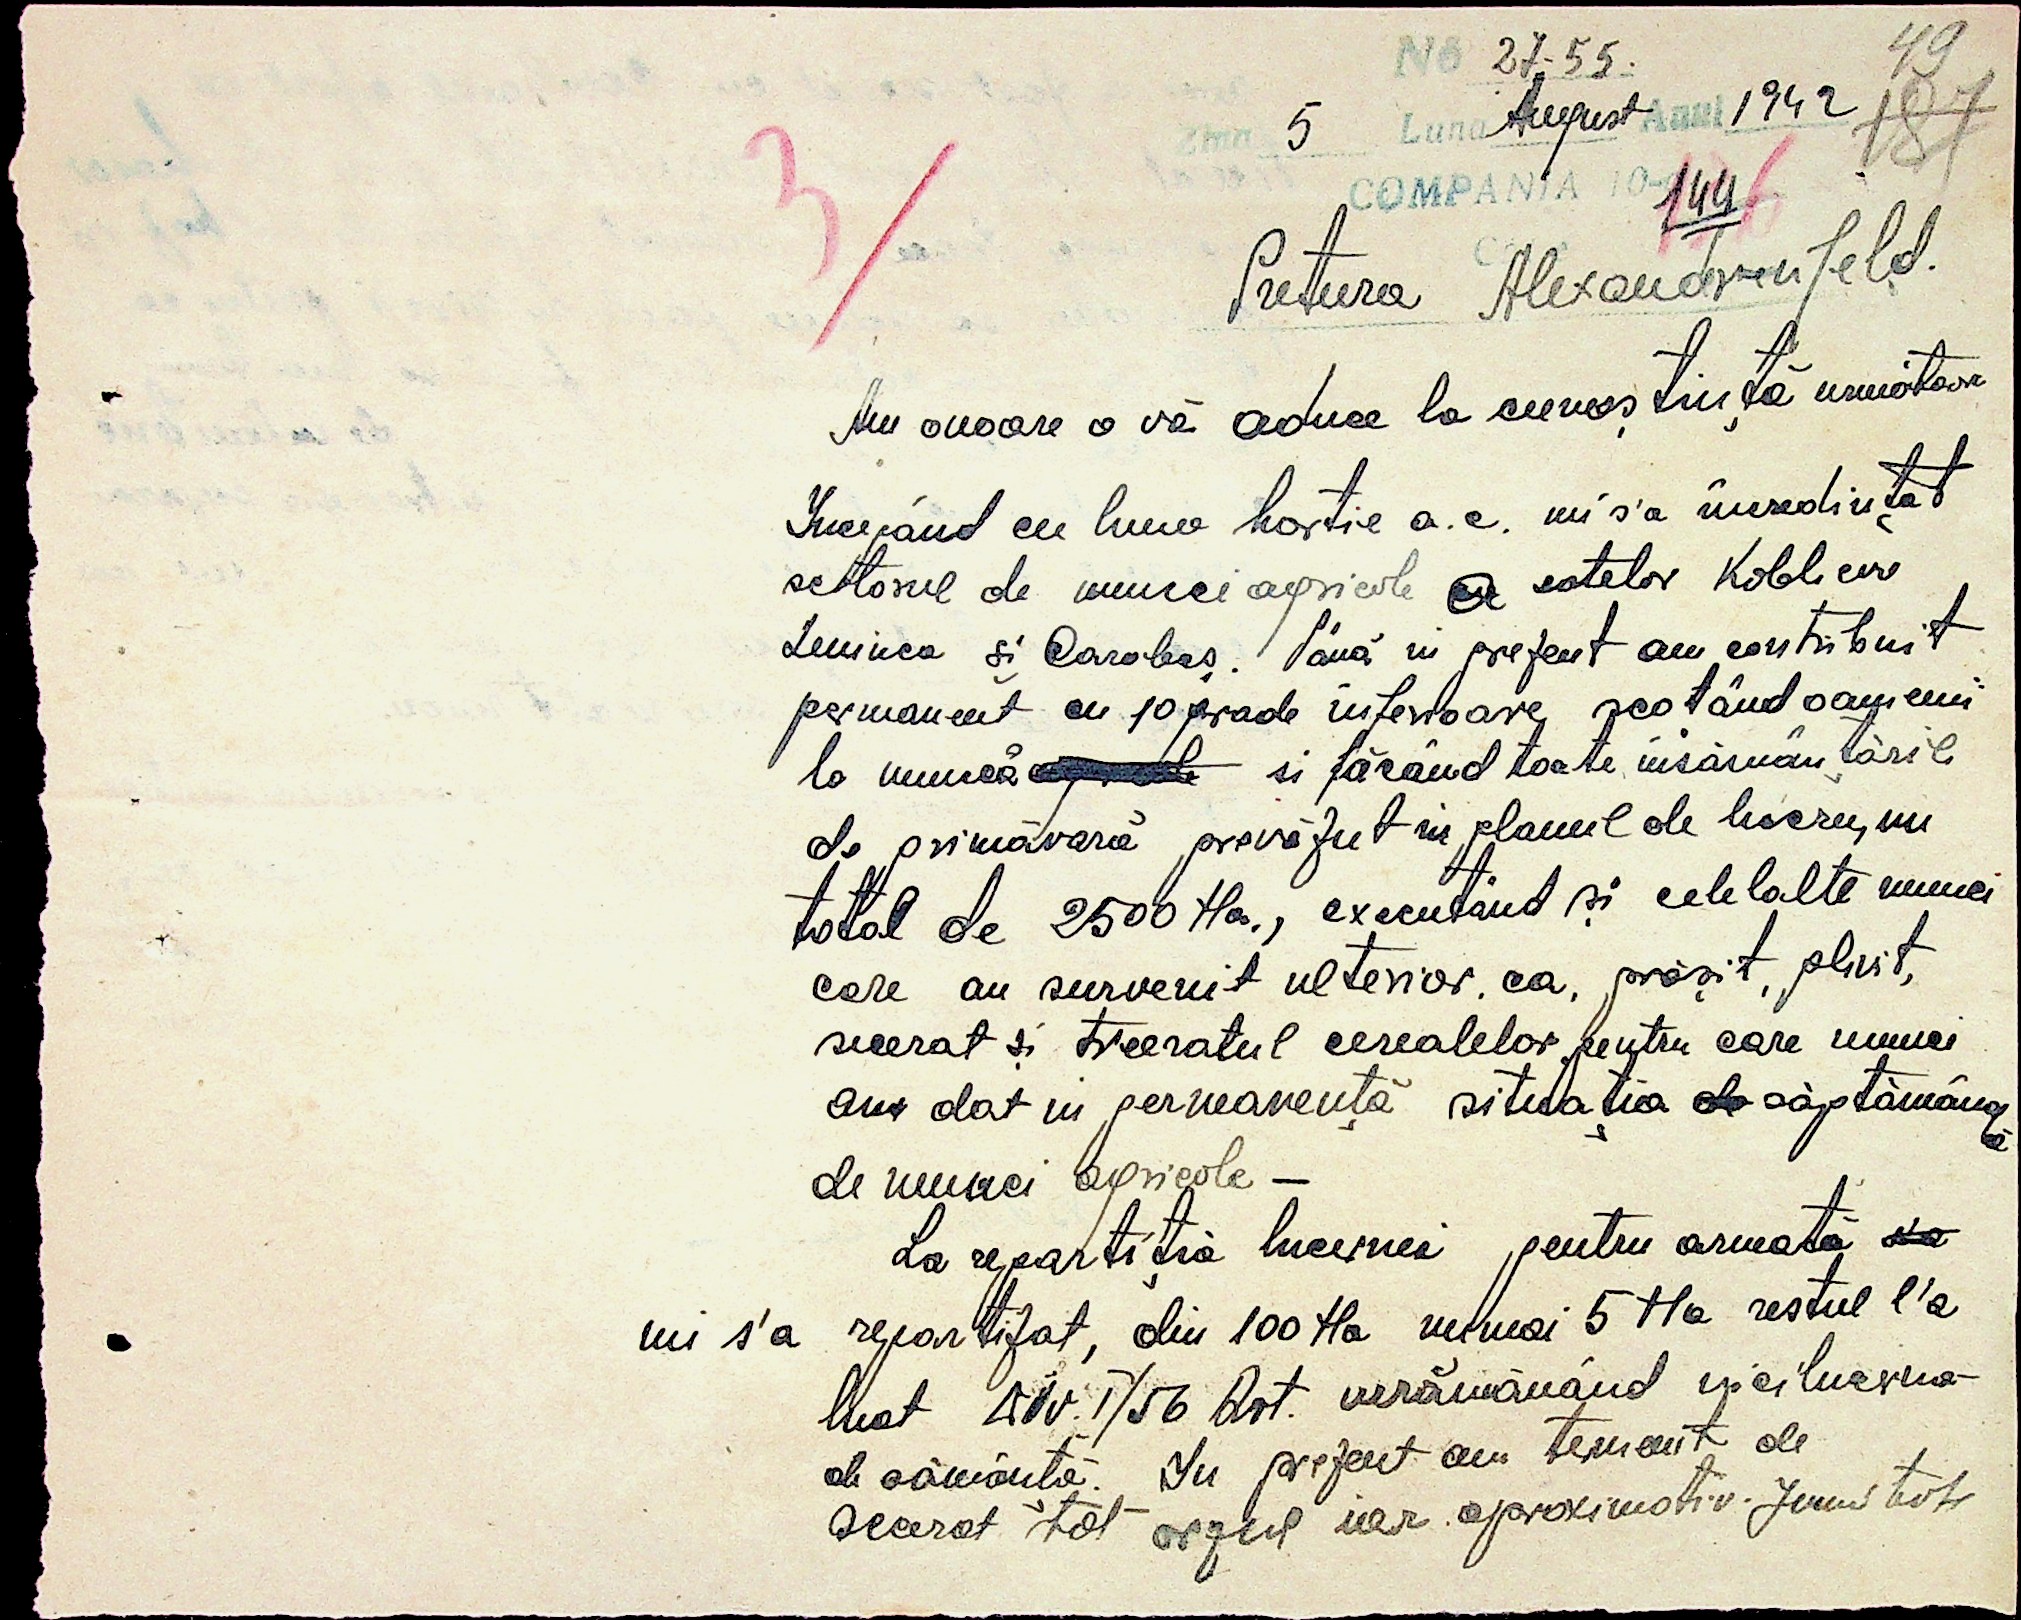 No 27-55.
49
Ziua 5 Luna August Anul 1942
187
COMPANIA 10-
144
3/
Pretura Alexandrenfeld.
Am onoare a vă aduce la cunoștință următoare
Incepând cu luna Martie a.c. mi s'a încredințat
sectorul de munci agricole a satelor
Leninca și Carabaș. Până in prezent am contribuit
permanent cu 10 grade inferioare, scotând oameni
la muncă si făcând toate insămânțăril
de primăvară prevăzut in planul de lucru, un
total de 2500 Ha., executând și celelalte munci
care au survenit ulterior. ca, prășit, plivit,
secerat și treeratul cerealelor, pentru care munci
am dat in permanență situația săptămâna
de munci agricole —
La repartiția lucernei pentru armată
mi s'a repartizat, din 100 Ha numai 5 Ha restul l'a
luat Div. I/56 Art. nerămânând nici lucerna
de sămânță. In prezent am terminat de
secerat tot orzul iar aproximativ